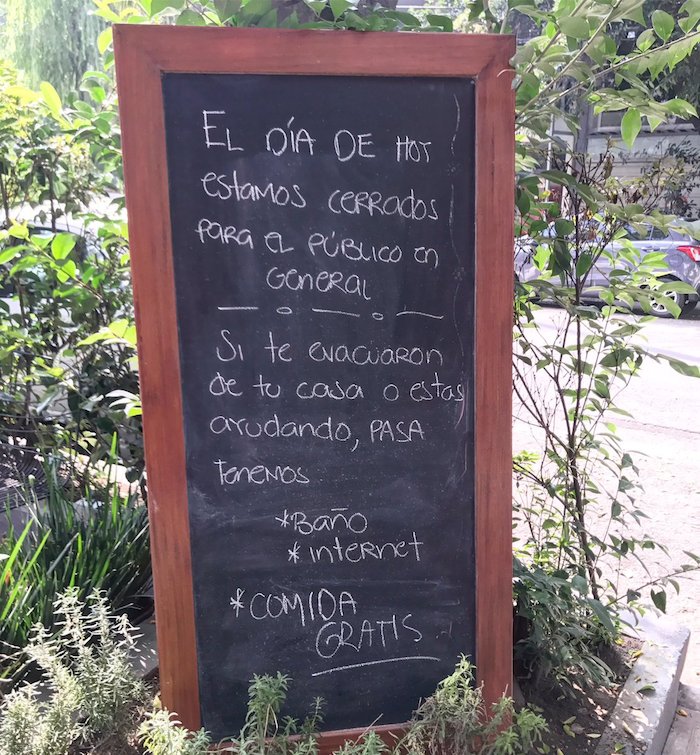 EL DÍA DE HOY
estamos cerrados
para el PÚBLICO en
General
Si te evacuaron
de tu casa o estas
ayudando, PASA
tenemos
*Baño
*internet
*COMIDA
GRATIS